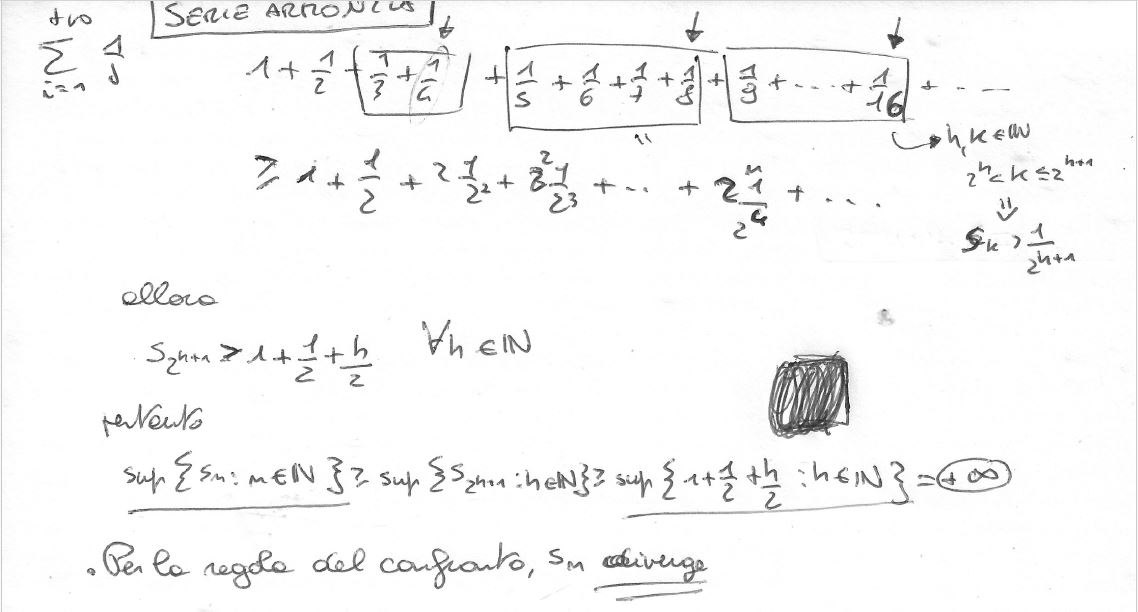 SERIE ARMONICA
+∞ ∑ i=1 1/j
1 + 1/2 + 1/3 + 1/4 + 1/5 + 1/6 + 1/7 + 1/8 + 1/9 + ... + 1/16 + ...
"
→ h, k ∈ ℕ
≥ 1 + 1/2 + 2 1/2² + 2² 1/2³ + ... + 2ʰ 1/2⁴ + ...
2ʰ < k ≤ 2ʰ⁺¹
⇓
Sₖ > 1/2ʰ⁺¹
allora
S₂ₕ₊₁ ≥ 1 + 1/2 + h/2 ∀h ∈ ℕ
pertanto
sup {Sₙ : n ∈ ℕ} ≥ sup {S₂ₕ₊₁ : h ∈ ℕ} ≥ sup {1 + 1/2 + h/2 : h ∈ ℕ} = +∞
. Per la regola del confronto, Sₙ diverge